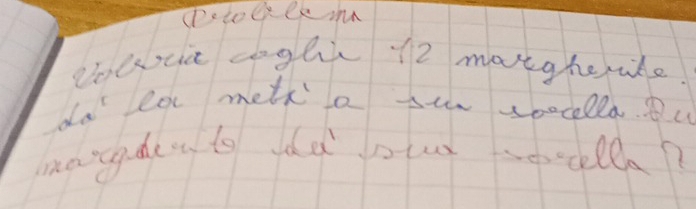 Problema
Valeria coglie 12 margherite.
dà la metà a sua sorella. Qu
margherite dà sua sorella?